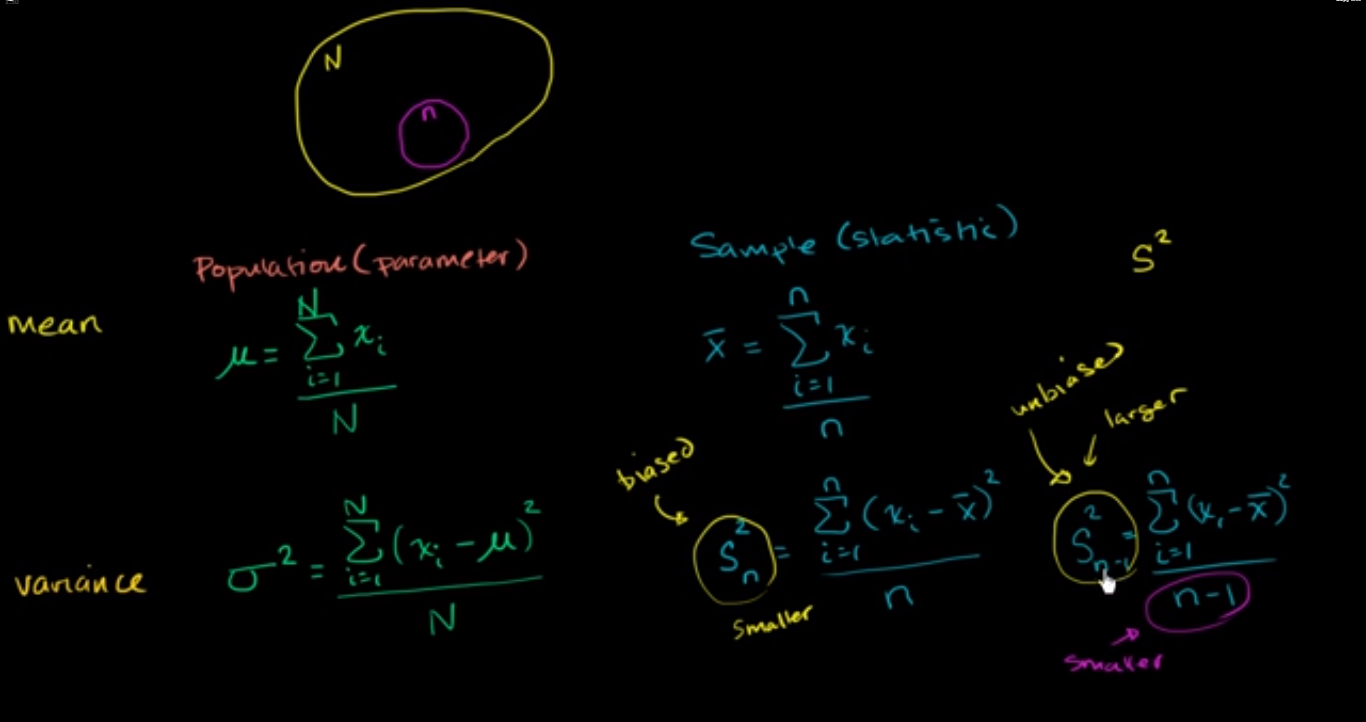 N
n
Population (parameter)
Sample (statistic)
S²
mean
μ = ∑_{i=1}^{N} x_i / N
x̄ = ∑_{i=1}^{n} x_i / n
unbiased
larger
biased
variance
σ² = ∑_{i=1}^{N} (x_i - μ)² / N
S_n² = ∑_{i=1}^{n} (x_i - x̄)² / n
S_{n-1}² = ∑_{i=1}^{n} (x_i - x̄)² / n-1
smaller
smaller